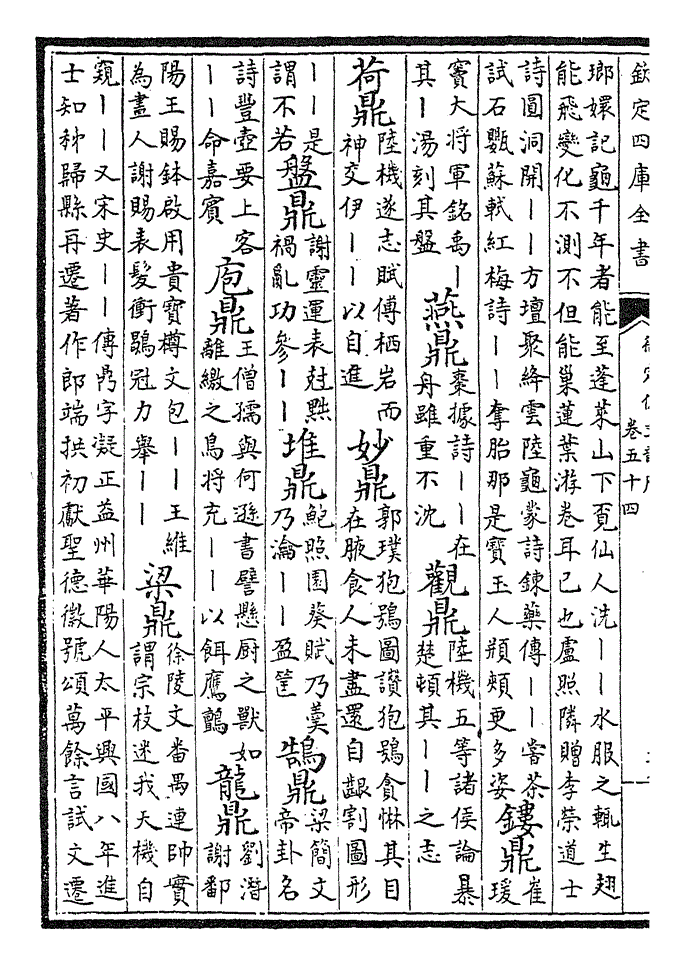 欽定四庫全書
卷五十四
瑯嬛記龜千年者能至蓬萊山下覔仙人洗丨丨水服之輒生翅
能飛變化不測不但能巢蓮葉游卷耳已也盧照隣贈李榮道士
詩圓洞開丨丨方壇聚絳雲陸龜蒙詩鍊藥傳丨丨嘗茶
試石甖蘇軾紅梅詩丨丨奪胎那是寳玉人頩頰更多姿
鏤鼎
崔
瑗
竇大將軍銘禹丨
其丨湯刻其盤
燕鼎
棗據詩丨丨在
舟雖重不沈
觀鼎
陸機五等諸侯論暴
楚頓其丨丨之志
荷鼎
陸機遂志賦傅栖岩而
神交伊丨丨以自進
妙鼎
郭璞狍鴞圖讚狍鴞貪惏其目
在腋食人未盡還自齦割圖形
丨丨是
謂不若
盤鼎
謝靈運表尅黜
禍亂功參丨丨
堆鼎
鮑照園葵賦乃羮
乃瀹丨丨盈筐
鵠鼎
梁簡文
帝卦名
詩豐壺要上客
丨丨命嘉賓
庖鼎
王僧孺與何遜書譬懸厨之獸如
離繳之鳥將充丨丨以餌鷹鸇
龍鼎
劉潛
謝鄱
陽王賜鉢啟用貴寳樽文包丨丨王維
為畫人謝賜表髮衝鶡冠力舉丨丨
梁鼎
徐陵文番禺連帥實
謂宗枝迷我天機自
窺丨丨又宋史丨丨傳鼎字凝正益州華陽人太平興國八年進
士知秭歸縣再遷著作郎端拱初獻聖德徽號頌萬餘言試文遷